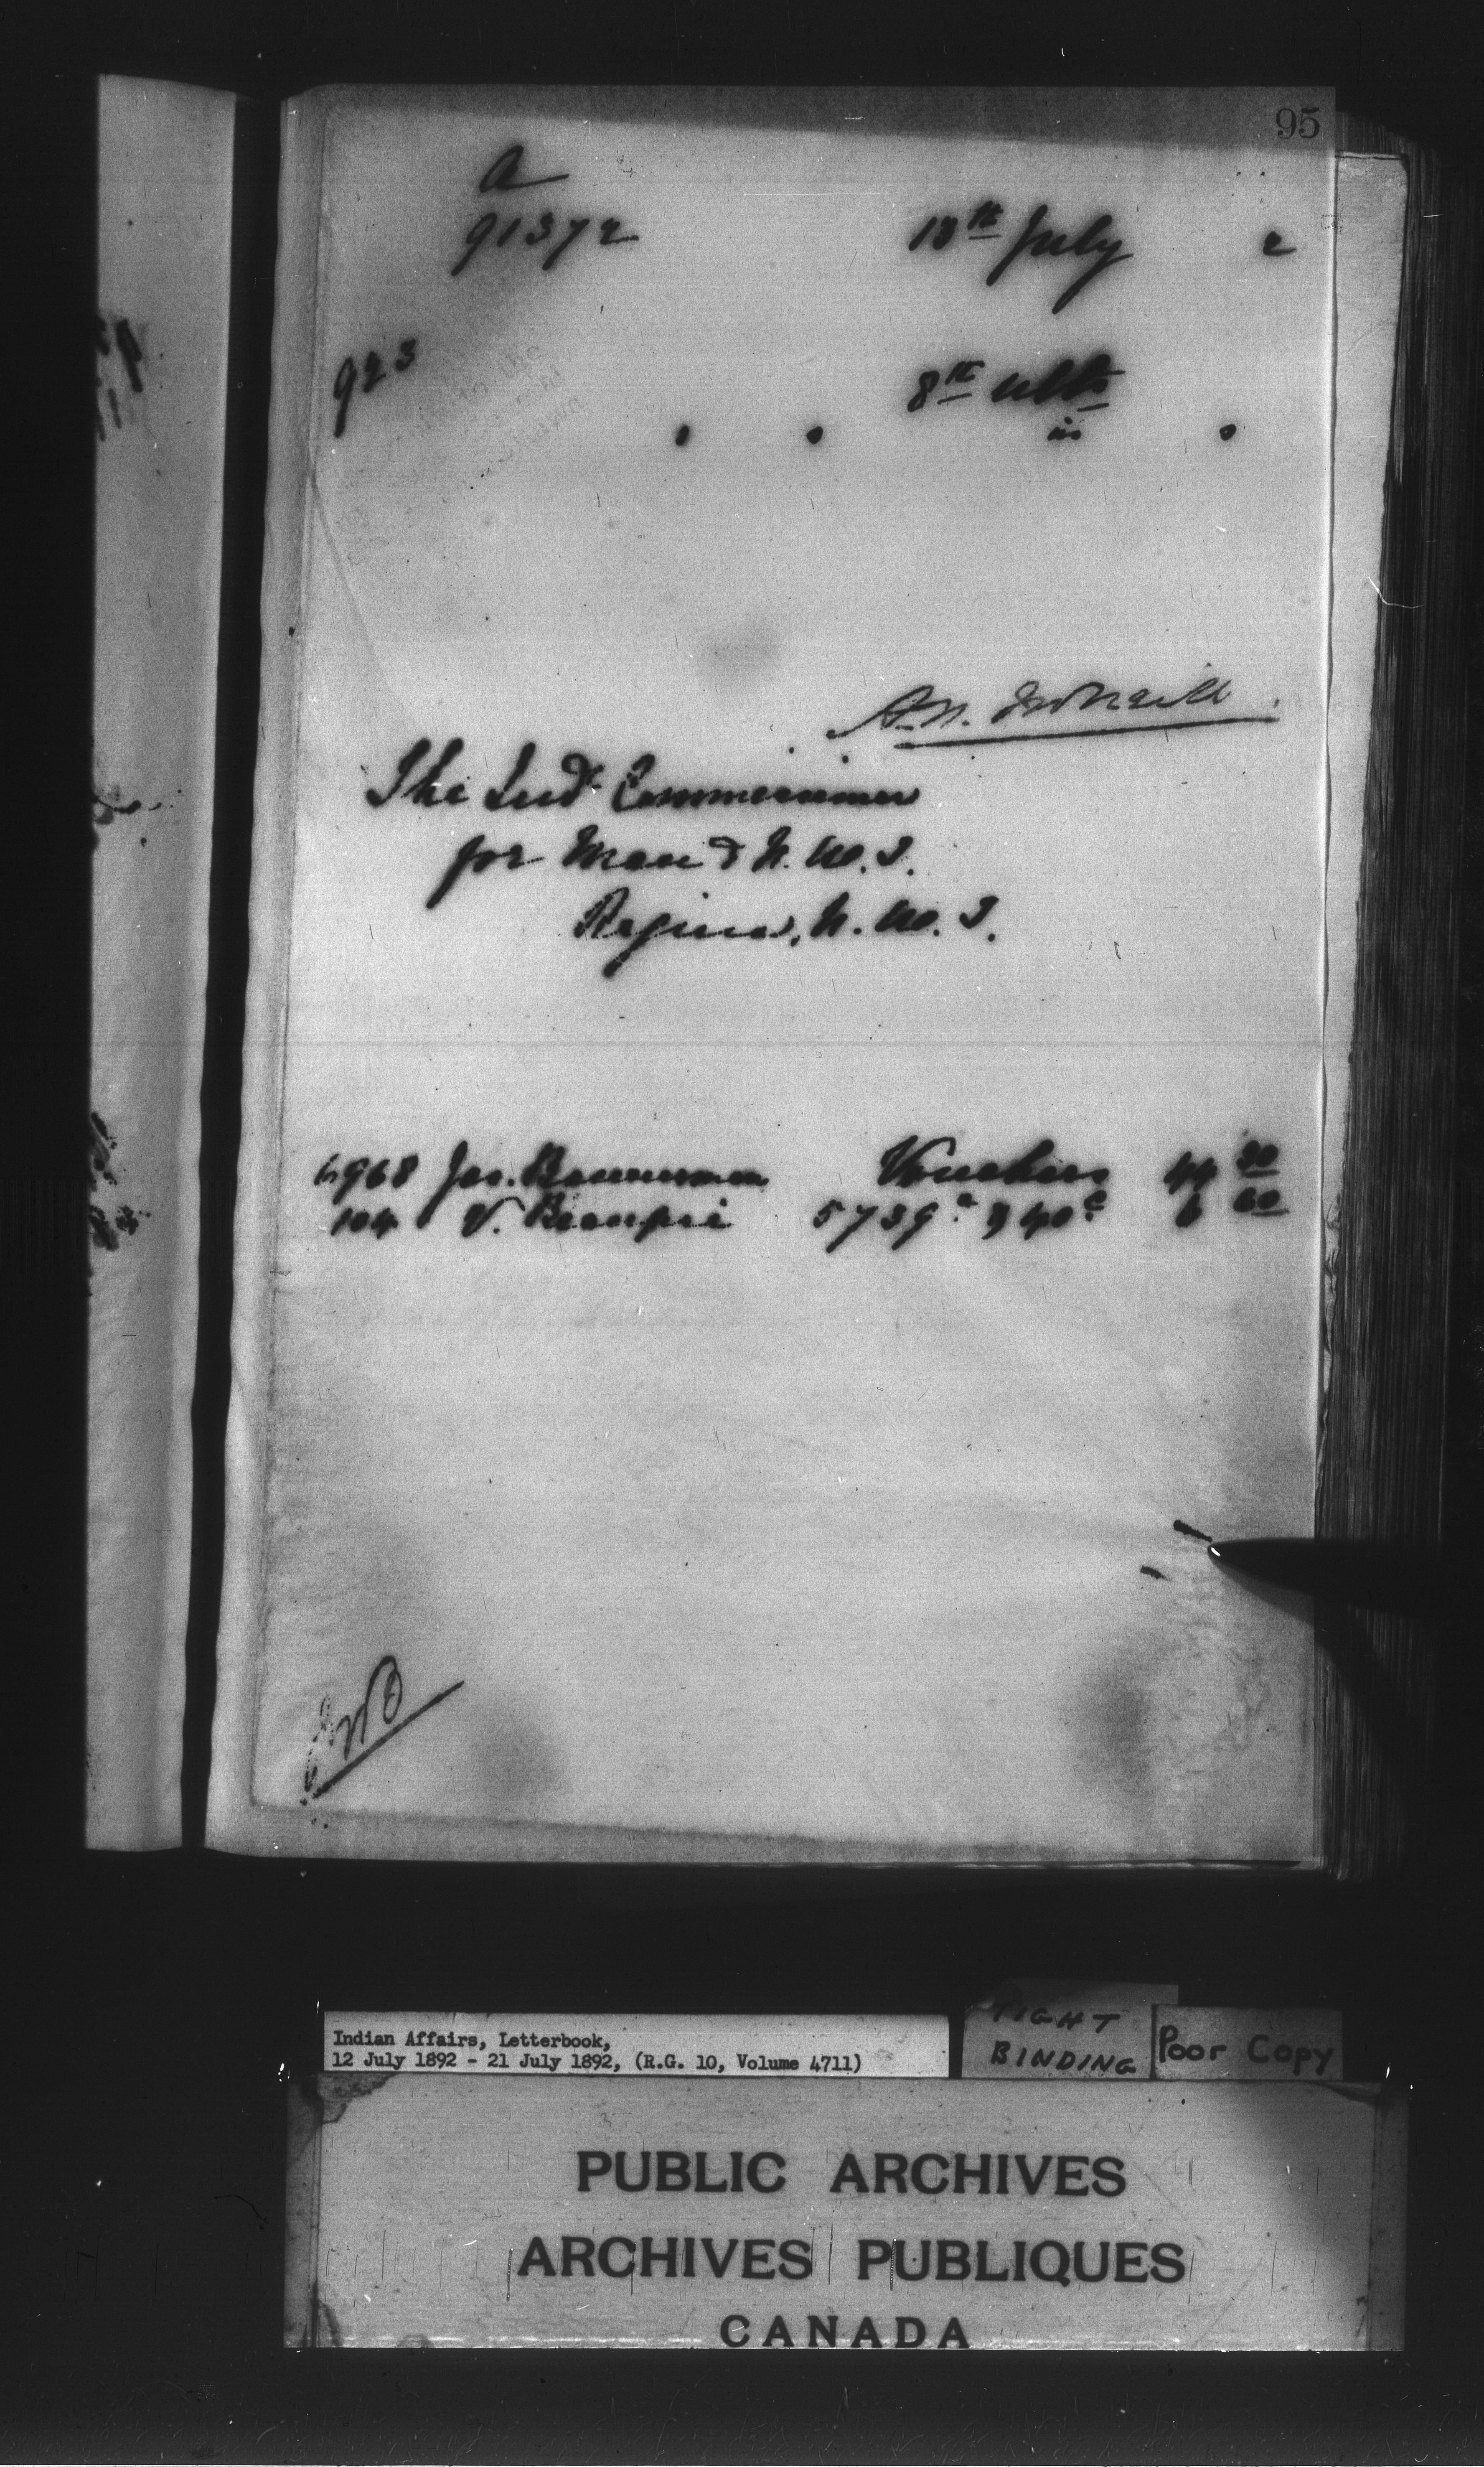 95
a
91372 13th July 2
923 8th ulto
in
The Ind. Commissioner
for Man & N.W.T.
Regina, N.W.T.
4968 Jas. Bannerman Vouchers 44 30
104 V. Beaupré 5739a 40c 6 60
Indian Affairs, Letterbook,
12 July 1892 - 21 July 1892, (R.G. 10, Volume 4711)
TIGHT
BINDING
Poor Copy
PUBLIC ARCHIVES
ARCHIVES PUBLIQUES
CANADA